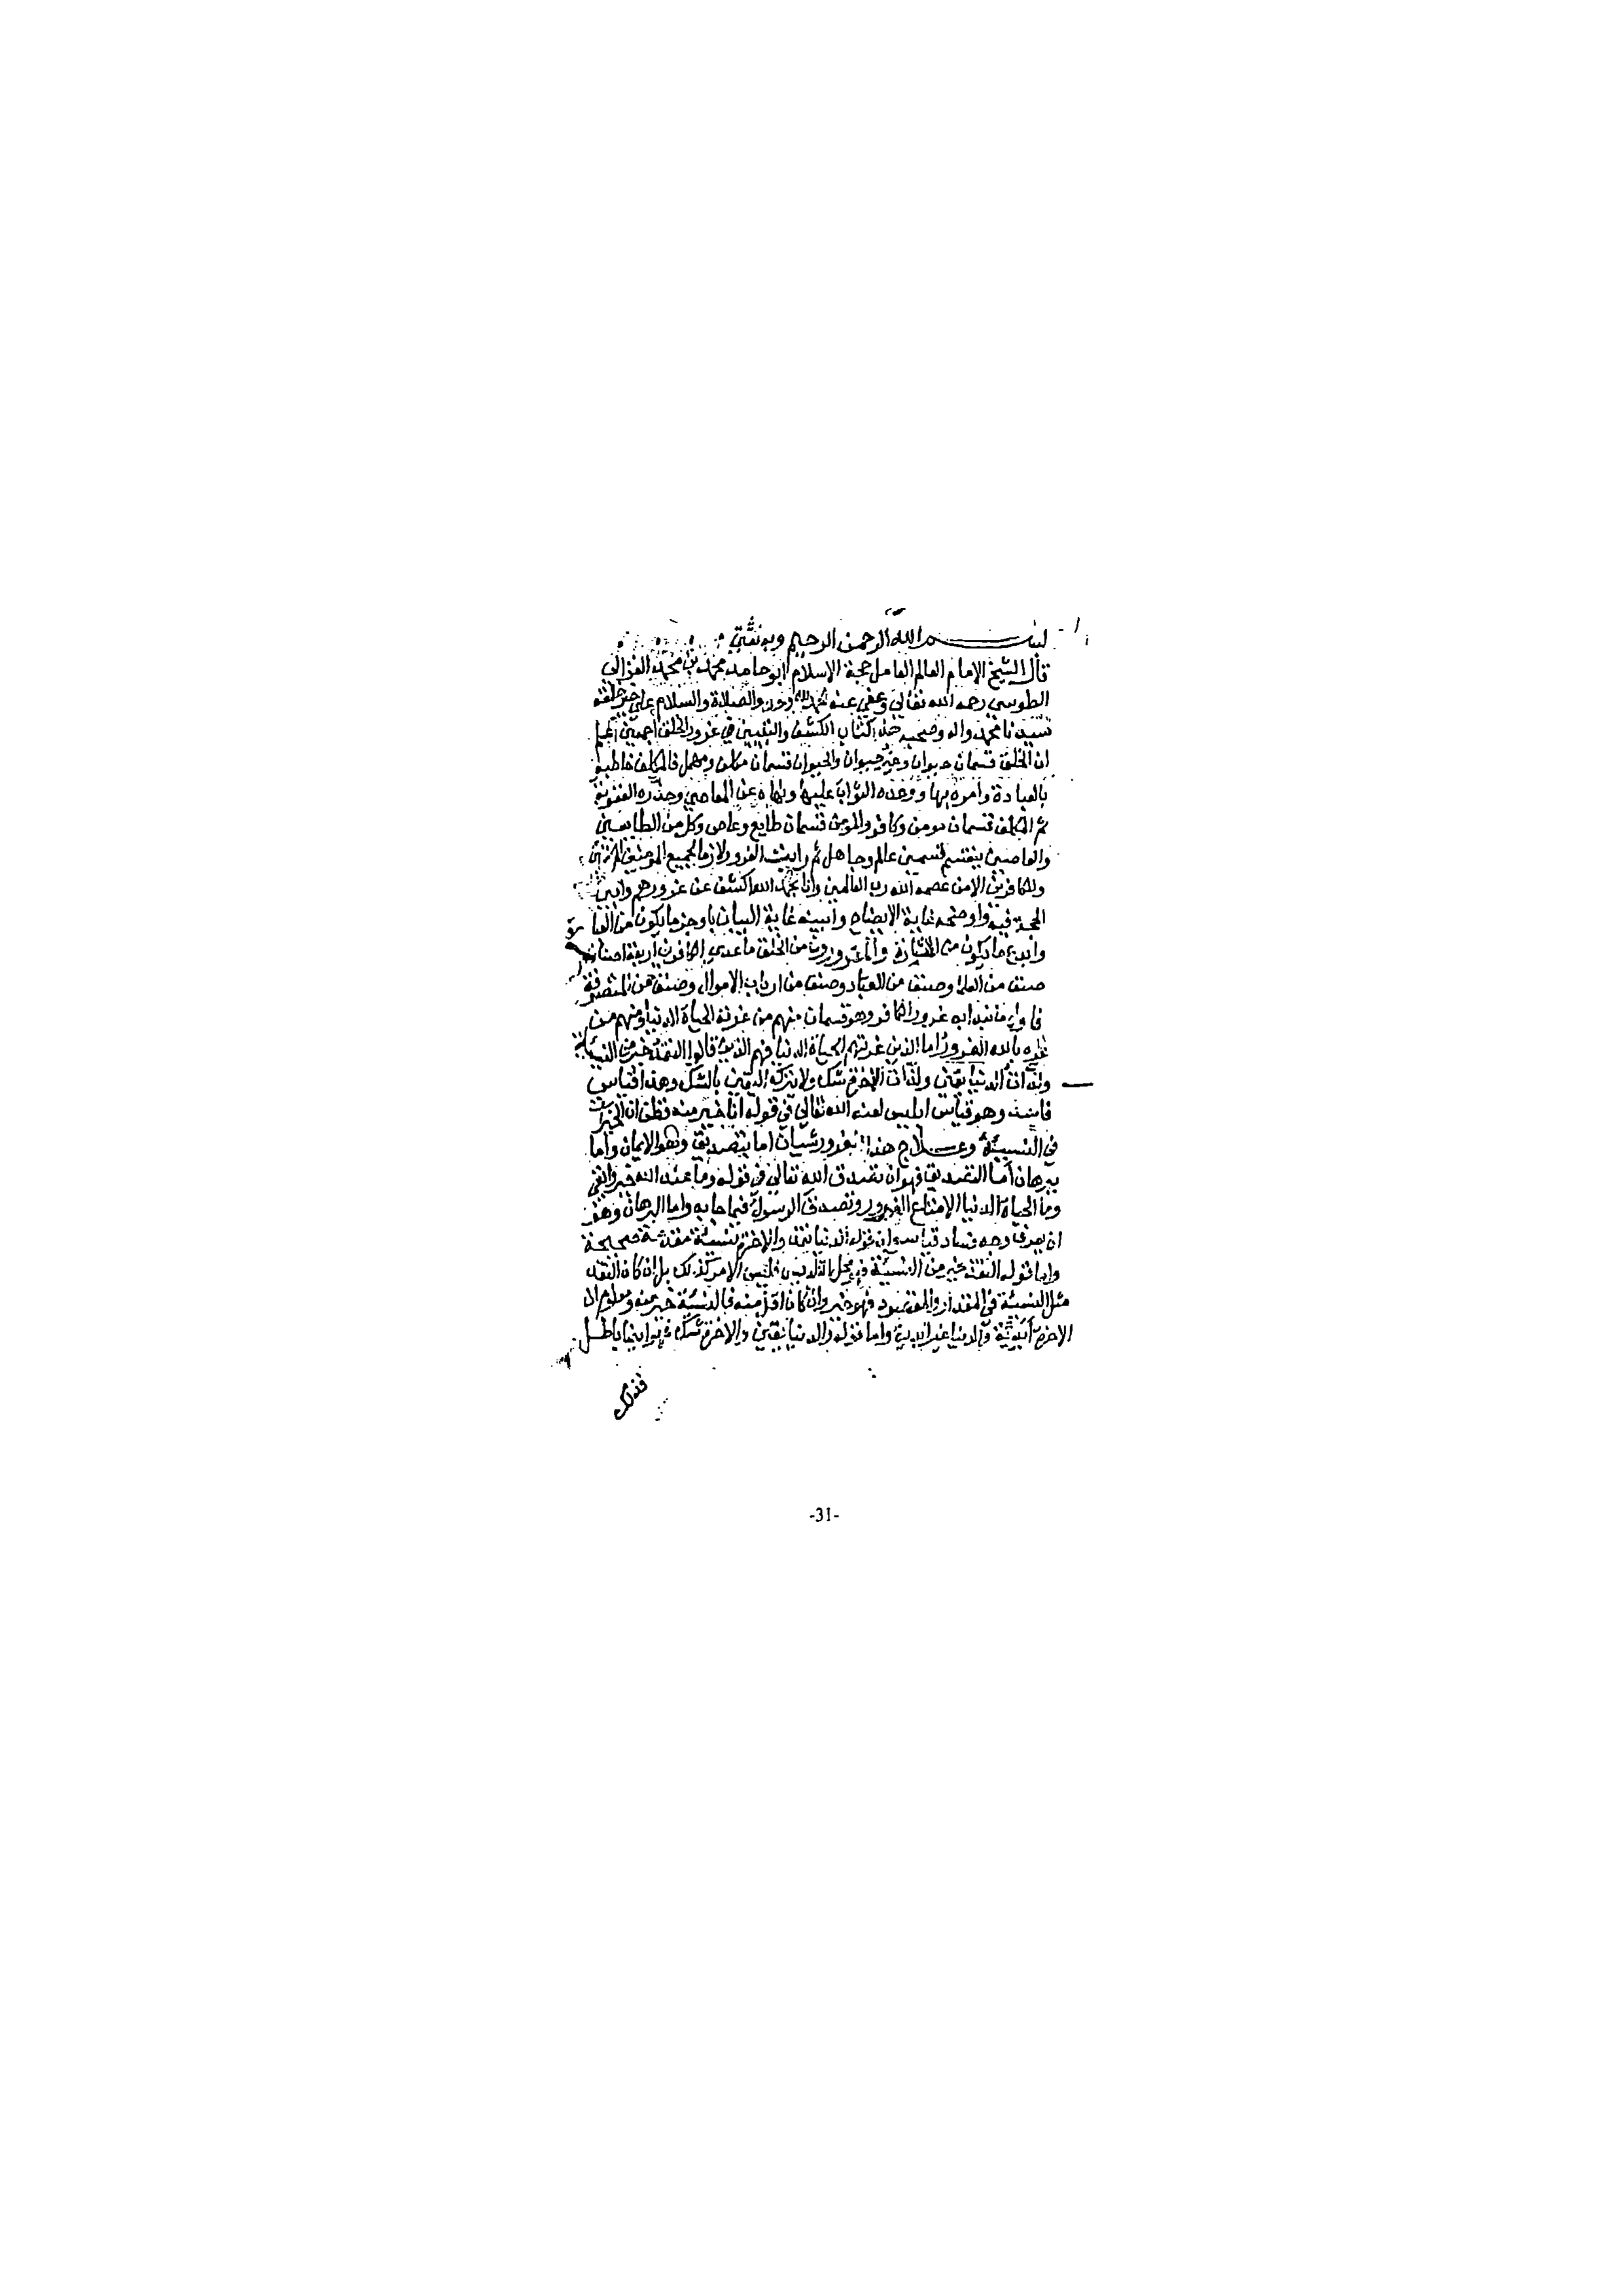 بسم الله الرحمن الرحيم وبه ثقتي
قال الشيخ الامام العالم العامل حجة الاسلام ابو حامد محمد بن محمد الغزالي
الطوسي رحمه الله تعالى وعفي عنه الحمد لله وحده والصلاة والسلام على خير خلقه
سيدنا محمد واله وصحبه هذا كتاب الكشف والتبيين في غرور الخلق اجمعين اعلم
ان الخلق قسمان حيوان وغير حيوان والحيوان قسمان مكلف ومهمل فالمكلف خاطبه
بالعبادة وامره بها ووعده الثواب عليها ونهاه عن المعاصي وحذره العقوبة
ثم المكلف قسمان مومن وكافر والمومن قسمان طايع وعاص وكل من الطايعين
والعاصين ينقسم قسمين عالم وجاهل ثم رايت الغرور لازما لجميع المومنين
والكافرين الا من عصمه الله رب العالمين وانا بحمد الله اكشف عن غرورهم وابين
الحجة فيه واوضحه غاية الايضاح وابينه غاية البيان باوجز ما يكون من العبارة
وابدع ما يكون من الاشارة والمغرورون من الخلق ما عدى الكافرين اربعة اصناف
صنف من العلما وصنف من العباد وصنف من ارباب الاموال وصنف من المتصوفة
فاول ما نبدا به غرور الكافر وهو قسمان منهم من غرته الحياة الدنيا ومنهم من
غره بالله الغرور اما الذين غرتهم الحياة الدنيا فهم الذين قالوا النقد خير من النسيئة
ولذات الدنيا يقين ولذات الاخرة شك ولا يترك اليقين بالشك وهذا قياس
فاسد وهو قياس ابليس لعنه الله تعالى في قوله انا خير منه فظن ان الخيرية
في النسيئة وعلاج هذا الغرور شيان اما بتصديق وهو الايمان واما
ببرهان اما التصديق فهو ان تصدق الله تعالى في قوله وما عند الله خير وابقى
وما الحياة الدنيا الا متاع الغرور وتصدق الرسول فيما جا به واما البرهان وهو
ان يعرف وجه فساد قياسه ان قوله الدنيا نقد والاخرة نسيئة مقدمة صحيحة
واما قوله النقد خير من النسيئة فهو محل التلبيس فليس الامر كذلك بل ان كان النقد
مثل النسيئة في المقدار والمقصود فهو خير وان كان اقل منه فالنسيئة خير منه ومعلوم ان
الاخرة ابدية والدنيا غير ابدية واما قوله والدنيا يقين والاخرة شك فهو ايضا باطل
فذلك
-31-